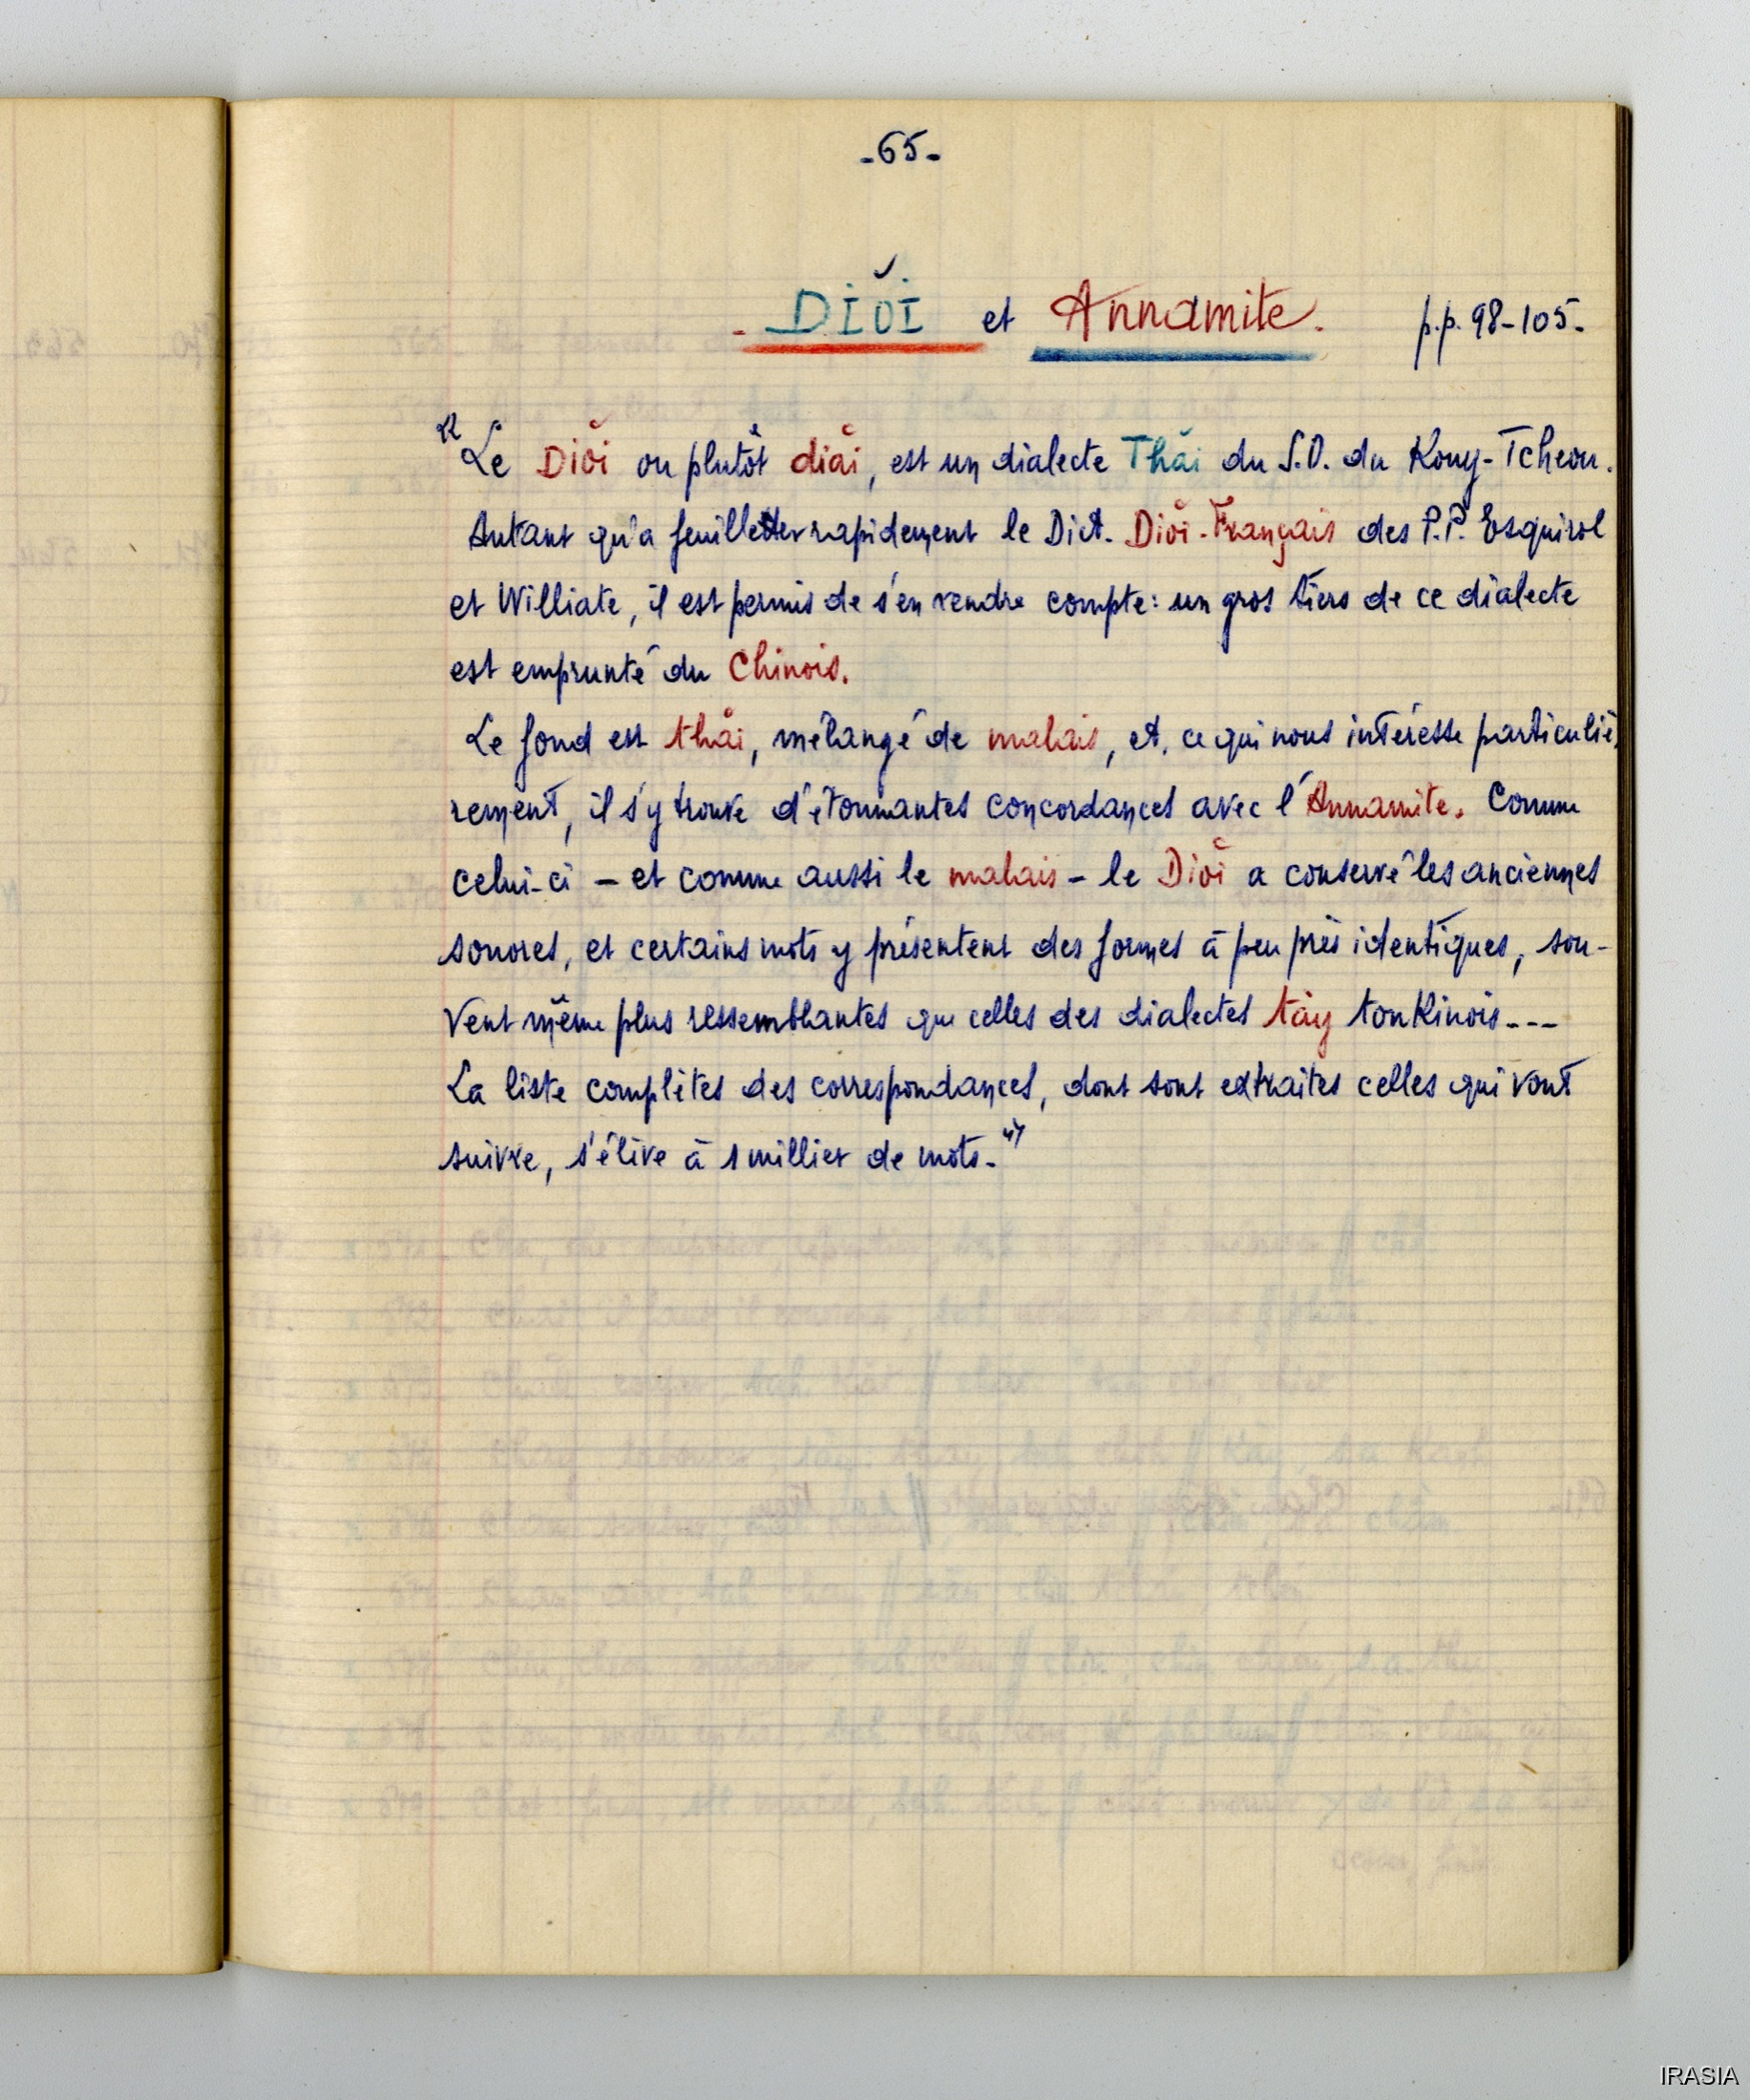 -65-
- Diŏi et Annamite. p.p. 98-105-
"Le Diŏi ou plutôt diăi, est un dialecte Thăi du S.O. du Kouy-Tcheou.
Autant qu'a feuilletter rapidement le Dict. Diŏi-Français des P.P. Esquirol
et Williate, il est permis de s'en rendre compte: un gros tiers de ce dialecte
est emprunté du Chinois.
Le fond est thăi, mélangé de malais, et, ce qui nous intéresse particuliè-
rement, il s'y trouve d'étonnantes concordances avec l'Annamite. Comme
celui-ci – et comme aussi le malais – le Diŏi a conservé les anciennes
sonores, et certains mots y présentent des formes à peu près identiques, sou-
vent même plus ressemblantes que celles des dialectes tày tonkinois---
La liste complètes des correspondances, dont sont extraites celles qui vont
suivre, s'élève à 1 millier de mots."
IRASIA